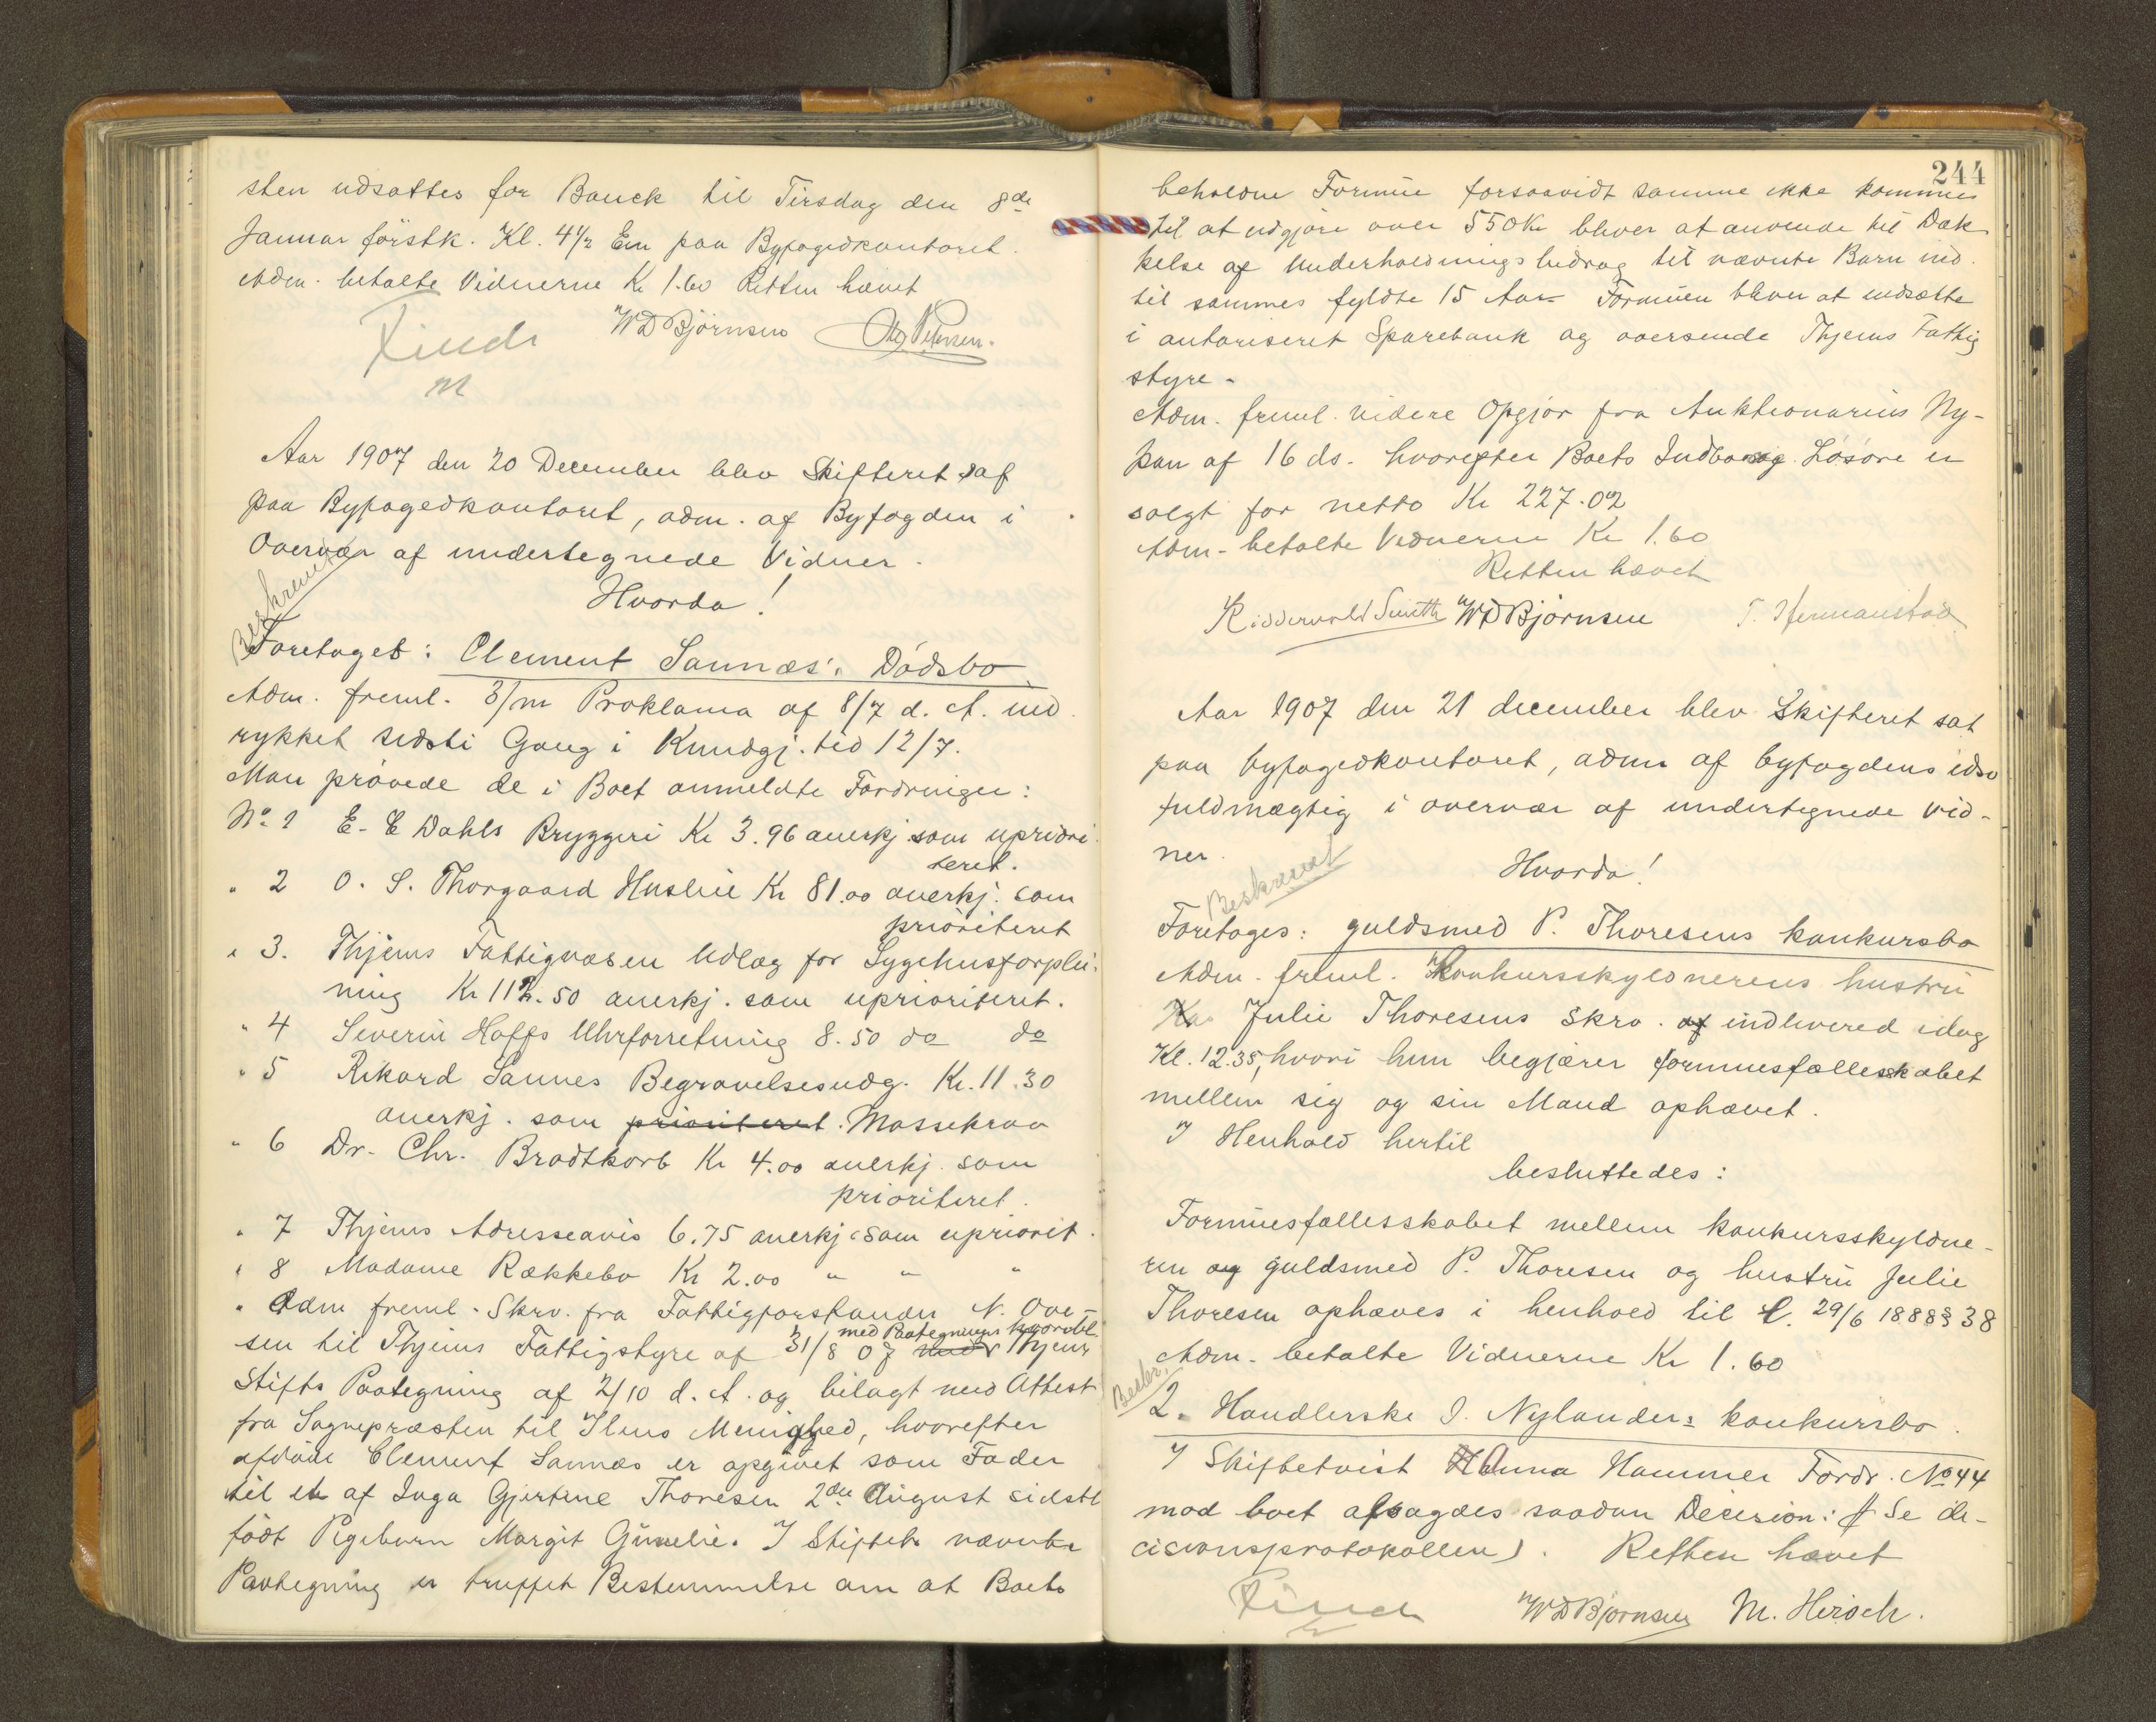 sten udsattes for Bauck til Tirsdag den 8de
Januar førstk. Kl. 4½ Em paa Byfogedkontoret.
Adm. betalte Vidnerne Kr 1.60 Retten hævet
Finch WD Bjørnsen Petersen.
Aar 1907 den 20 December blev Skifteret saf
paa Byfogedkontoret, adm. af Byfogden i
Overvær af undertegnede Vidner.
Hvorda!
Beskrevet
Foretaget: Clement Sannæs's Dødsbo.
Adm. freml. 3/m Proklama af 8/7 d. A. ind
rykket sidste Gang i Kundgj. tid 12/7.
Man prøvede de i Boet anmeldte Fordringer:
No 1 E. C Dahls Bryggeri Kr 3.96 anerkj. som upriori
teret.
" 2 O. S. Thorgaard Husleie Kr 81.00 anerkj. som
prioriteret
" 3. Thjems Fattigvæsen Udlæg for Sygehusforplei-
ning Kr 112.50 anerkj. som uprioriteret.
" 4 Severin Hoffs Uhrforretning 8.50 do do
" 5 Rikard Sannes Begravelsesudg. Kr. 11.30
anerkj. som prioriteret. Massekrav
" 6 Dr. Chr. Bradtkorb Kr 4.00 anerkj. som
prioriteret.
" 7 Thjems Adresseavis 6.75 anerkj. som upriorit.
" 8 Madame Rækkebo Kr 2.00 " " "
" Adm freml. Skrv. fra Fattigforstander N. Ove-
med Paategnings
sen til Thjems Fattigstyre af 31/8 07 Thjems
Stifts Paategning af 2/10 d. A. og bilagt med Attest
fra Sognepræsten til Ilens Menighed, hvorefter
afdøde Clement Sannæs er opgivet som Fader
til et af Inga Gjertine Thoresen 2den August sidstl
født Pigebarn Margit Gunelie. I Stiftets nævnte
Paategning er truffet Bestemmelse om at Boets
244
beholdne Formue forsaavidt samme ikke kommer
til at udgjøre over 550 Kr bliver at anvende til Dæk
kelse af Underholdningsbidrag til nævnte Barn ind
til sammes fyldte 15 Aar. Formuen bliver at indsætte
i autoriseret Sparebank og oversende Thjems Fattig
styre.
Adm. freml. videre Opgjør fra Auktionarius Ny-
pan af 16 ds. hvorefter Boets Indbo og Løsøre er
solgt for netto Kr 227.02
Adm. betalte Vidnerne Kr 1.60
Retten hævet
Riddervold Smith WD Bjørnsen T. Hermanstad
Aar 1907 den 21 december blev Skifteret sat
paa byfogedkontoret, adm af byfogdens edsv
fuldmægtig i overvær af undertegnede vid-
ner.
Hvorda!
Beskrevet
Foretages: guldsmed P. Thoresens konkursbo
Adm. freml. Konkursskyldnerens hustru
Julie Thoresens skrv. af indlevered idag
Kl. 12.35, hvori hun begjærer formuesfællesskabet
mellem sig og sin Mand ophævet.
I Henhold hertil
besluttedes:
Formuesfællesskabet mellem konkursskyldne-
ren og guldsmed P. Thoresen og hustru Julie
Thoresen ophæves i henhold til L. 29/6 1888 § 38
Adm. betalte Vidnerne Kr 1.60
Beskr.
2. Handlerske J. Nylanders konkursbo.
I Skiftetvist Anna Hammer Fordr. No 44
mod boet afsagdes saadan Decision: (Se de-
cisionsprotokollen). Retten hævet
Finch WD Bjørnsen M. Hirsch.